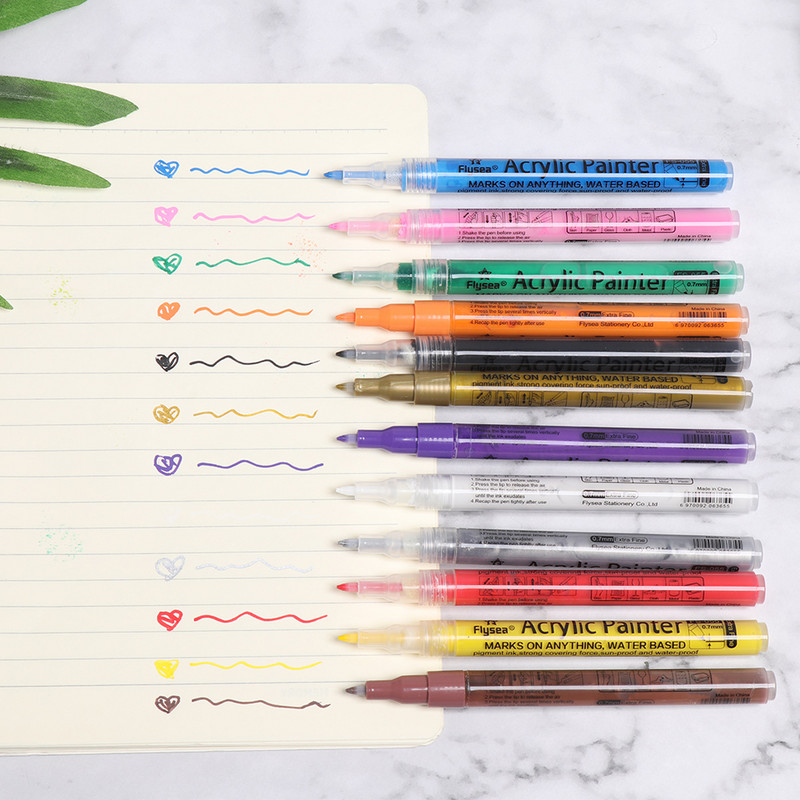 Flysea® Acrylic Painter 0.7mm
MARKS ON ANYTHING, WATER BASED
pigment ink, strong covering force, sun-proof and water-proof
1.Shake the pen before using
2.Press the tip to release the air
Made in China
Flysea® Acrylic Painter 0.7mm
2.Press the tip to release the air
3.Press the tip several times vertically
0.7mm Extra Fine
4.Recap the pen tightly after use
Flysea Stationery Co.,Ltd
6 970092 063655
Acrylic Painter
MARKS ON ANYTHING, WATER BASED
pigment ink, strong covering force, sun-proof and water-proof
until the ink exudates
0.7mm Extra Fine
Made in China
1.Shake the pen before using
2.Press the tip to release the air
3.Press the tip several times vertically
until the ink exudates
4.Recap the pen tightly after use
Made in China
Flysea Stationery Co.,Ltd
6 970092 063655
until the ink exudates
0.7mm Extra Fine
Flysea Stationery Co.,Ltd
Acrylic Painter
1.Shake the pen before using
Flysea® Acrylic Painter 0.7mm
MARKS ON ANYTHING, WATER BASED
pigment ink, strong covering force, sun-proof and water-proof
2.Press the tip to release the air
Made in China